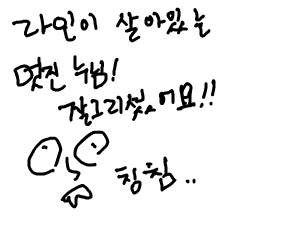 라인이 살아있는
멋진 누님!
잘그리셨어요!!
칭칭..